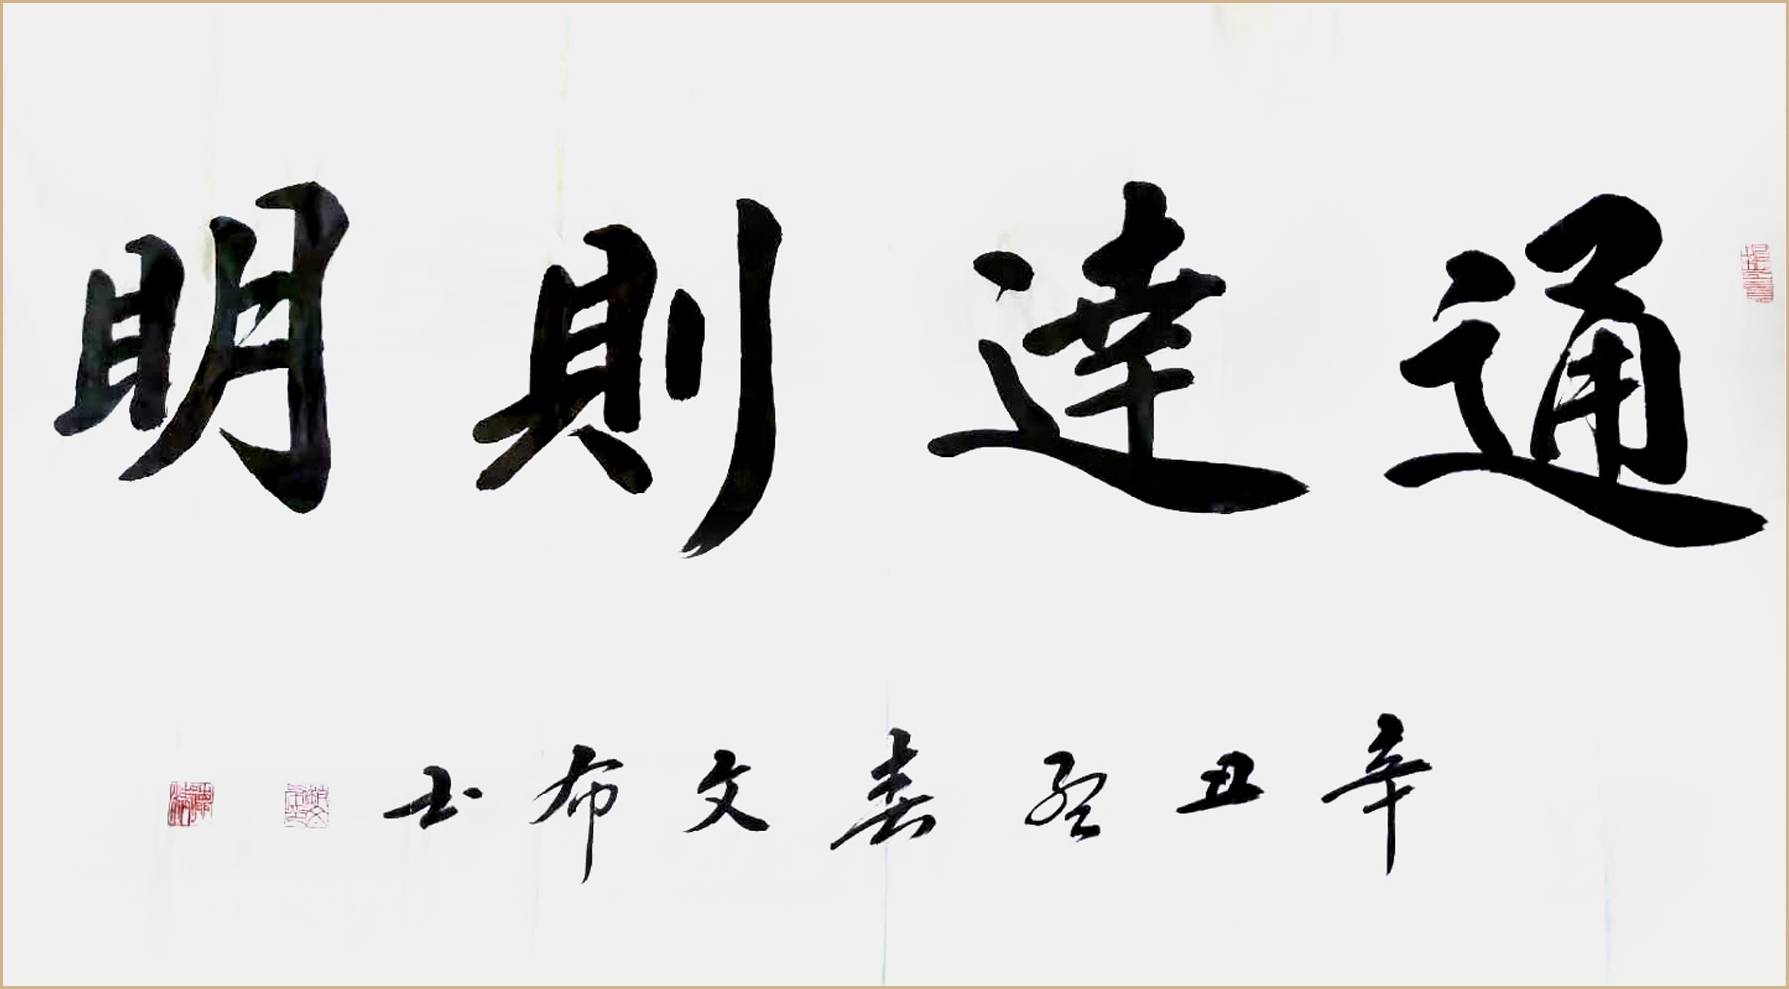 通達則明
辛丑孟春文布书